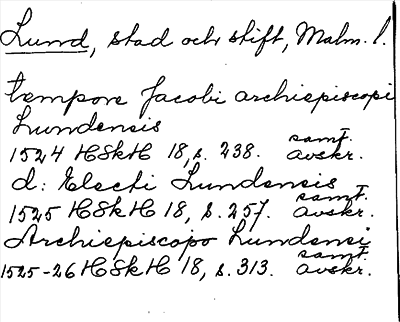 Lund, stad och stift, Malm. l.
tempore Jacobi archiepiscopi
Lundensis
1524 HSkH 18, s. 238. samt. avskr.
d: Electi Lundensis
1525 HSkH 18, s. 257. samt. avskr.
Archiepiscopo Lundensi
1525-26 HSkH 18, s. 313. samt. avskr.